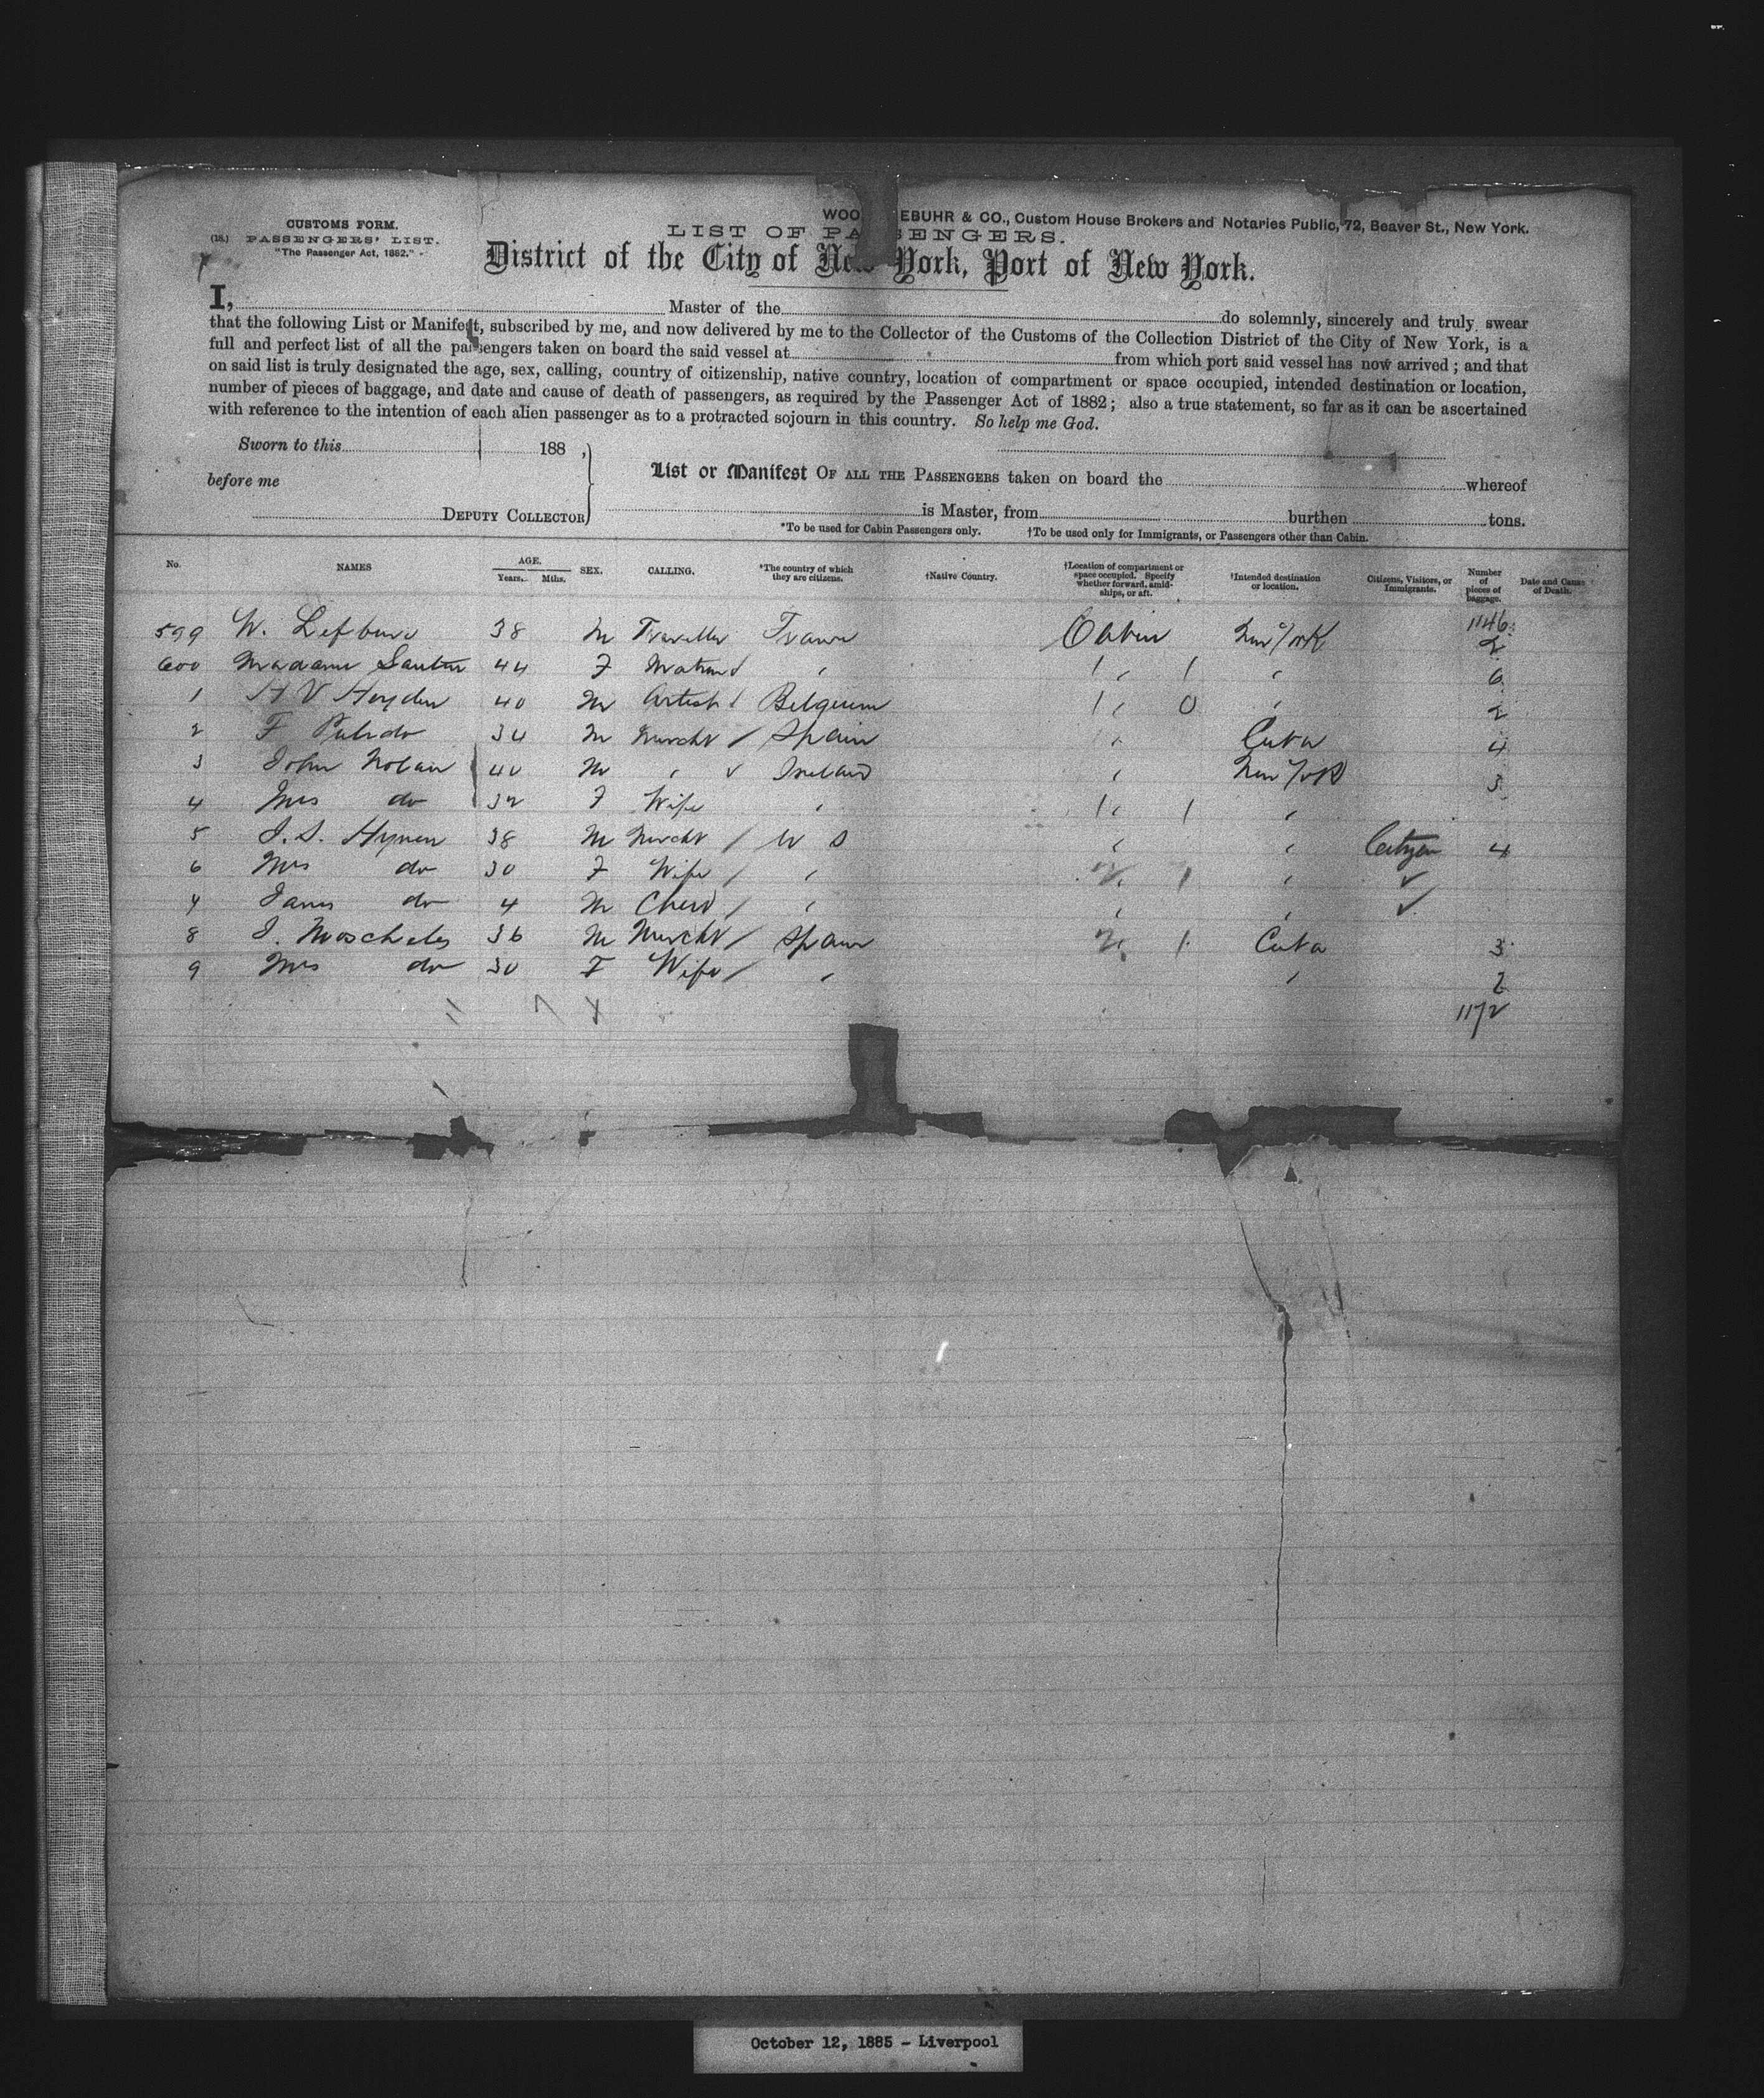 WOO EBUHR & CO., Custom House Brokers and Notaries Public, 72, Beaver St., New York.
CUSTOMS FORM.
(18.) PASSENGERS' LIST.
"The Passenger Act, 1882."
LIST OF PA SENGERS.
District of the City of New York, Port of New York.
I, Master of the do solemnly, sincerely and truly swear
that the following List or Manifest, subscribed by me, and now delivered by me to the Collector of the Customs of the Collection District of the City of New York, is a
full and perfect list of all the passengers taken on board the said vessel at from which port said vessel has now arrived; and that
on said list is truly designated the age, sex, calling, country of citizenship, native country, location of compartment or space occupied, intended destination or location,
number of pieces of baggage, and date and cause of death of passengers, as required by the Passenger Act of 1882; also a true statement, so far as it can be ascertained
with reference to the intention of each alien passenger as to a protracted sojourn in this country. So help me God.
Sworn to this 188 ,
before me
DEPUTY COLLECTOR
List or Manifest OF ALL THE PASSENGERS taken on board the whereof
is Master, from burthen tons.
*To be used for Cabin Passengers only. †To be used only for Immigrants, or Passengers other than Cabin.
No. NAMES AGE. Years. Mths. SEX. CALLING. *The country of which they are citizens. †Native Country. †Location of compartment or space occupied. Specify whether forward, amidships, or aft. †Intended destination or location. Citizens, Visitors, or Immigrants. Number of pieces of baggage. Date and Cause of Death.
1146
599 W. Lefbure 38 M Traveller France Cabin New York 2
600 Madame 44 F Matron 〃 1 〃 1 〃 6
1 H V Heyden 40 M Artist Belgium 1 〃 0 〃 2
2 F Pulido 34 M Mercht / Spain 〃 Cuba 4
3 John Nolan 40 M 〃 ✓ Ireland 〃 New York 3
4 Mrs do 32 F Wife 〃 1 〃 1 〃
5 J. S. Hyman 38 M Mercht / U S 〃 〃 Citizen 4
6 Mrs do 30 F Wife / 〃 2 〃 1 〃 ✓
7 James do 4 M Child / 〃 〃 〃 ✓
8 J. Moscheles 36 M Mercht / Spain 2 〃 1 Cuba 3
9 Mrs do 30 F Wife / 〃 〃 2
1172
October 12, 1885 - Liverpool